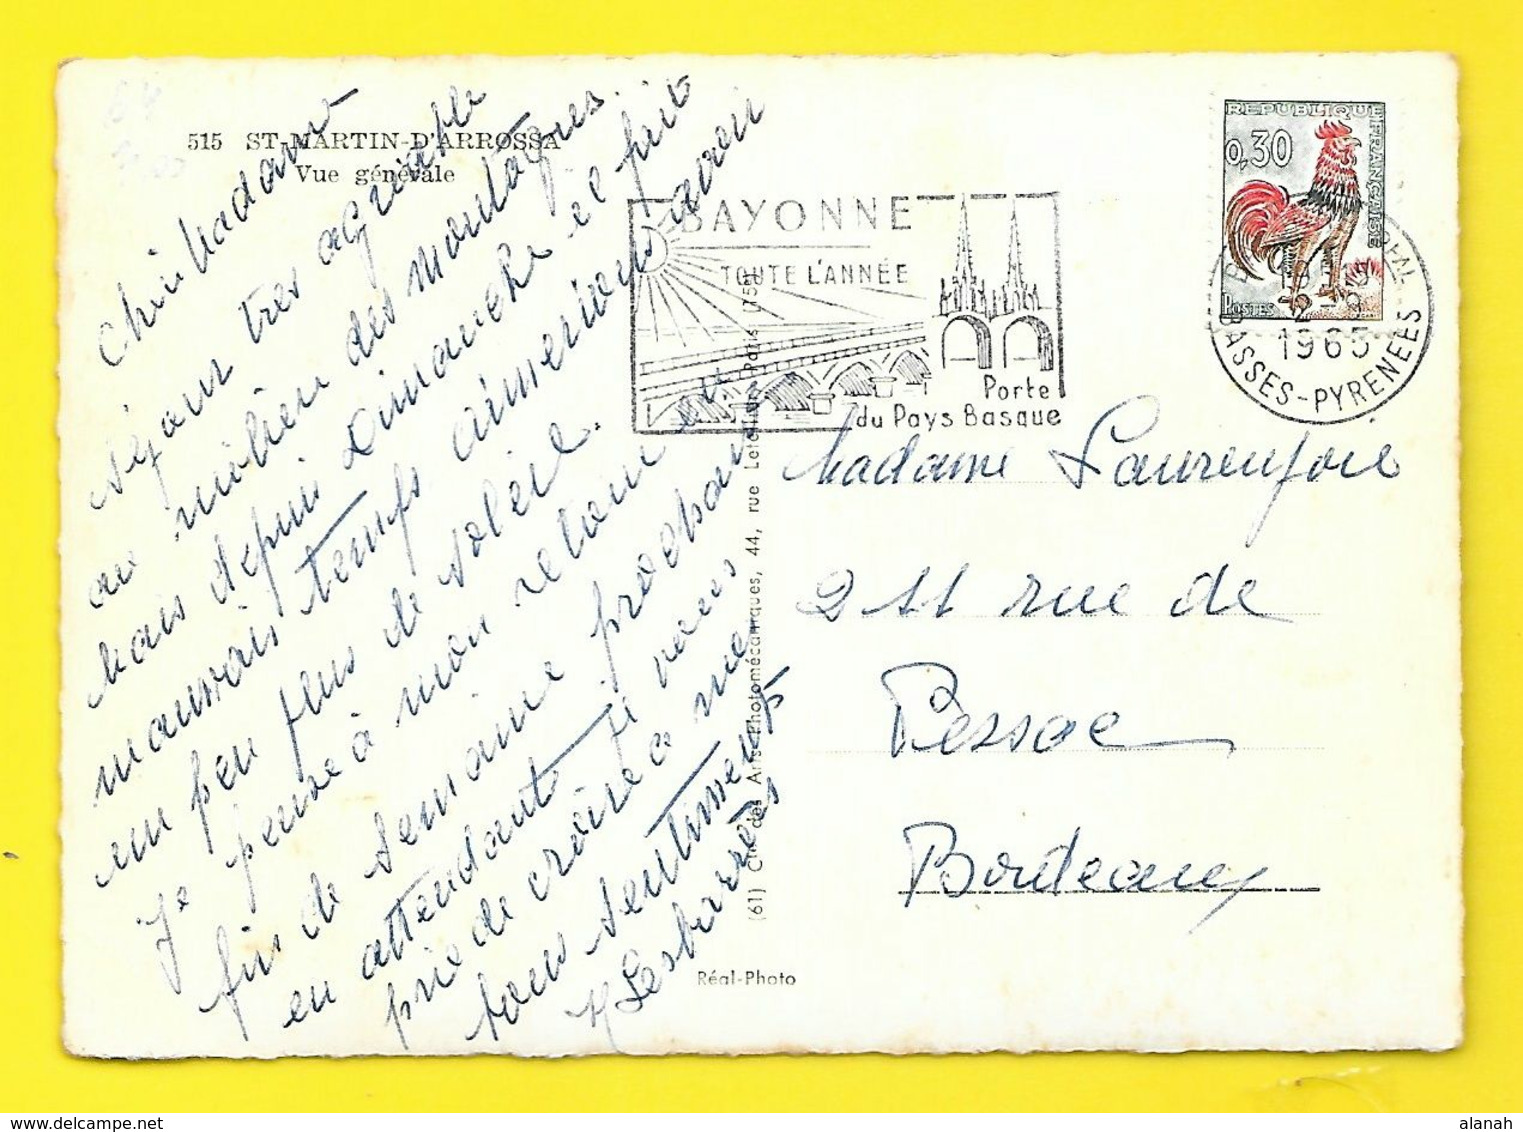 515 ST-MARTIN-D'ARROSSA
Vue générale
Madame
séjour tres agréable
au milieu des montagnes.
Mais depuis Dimanche il fait
mauvais temps aimerions avoir
un peu plus de soleil.
Je pense à mon retour en
fin de semaine prochaine
en attendant je vous
prie de croire à mes
bons sentiments
Lesbarrères
BAYONNE
TOUTE L'ANNÉE
Porte
du Pays Basque
REPUBLIQUE FRANÇAISE
0,30
POSTES
1965
BASSES-PYRENEES
Madame
211 rue de
Pessac
Bordeaux
(61) Cie des Arts Photomécaniques, 44, rue Letellier, Paris (15e)
Réal-Photo
alanah